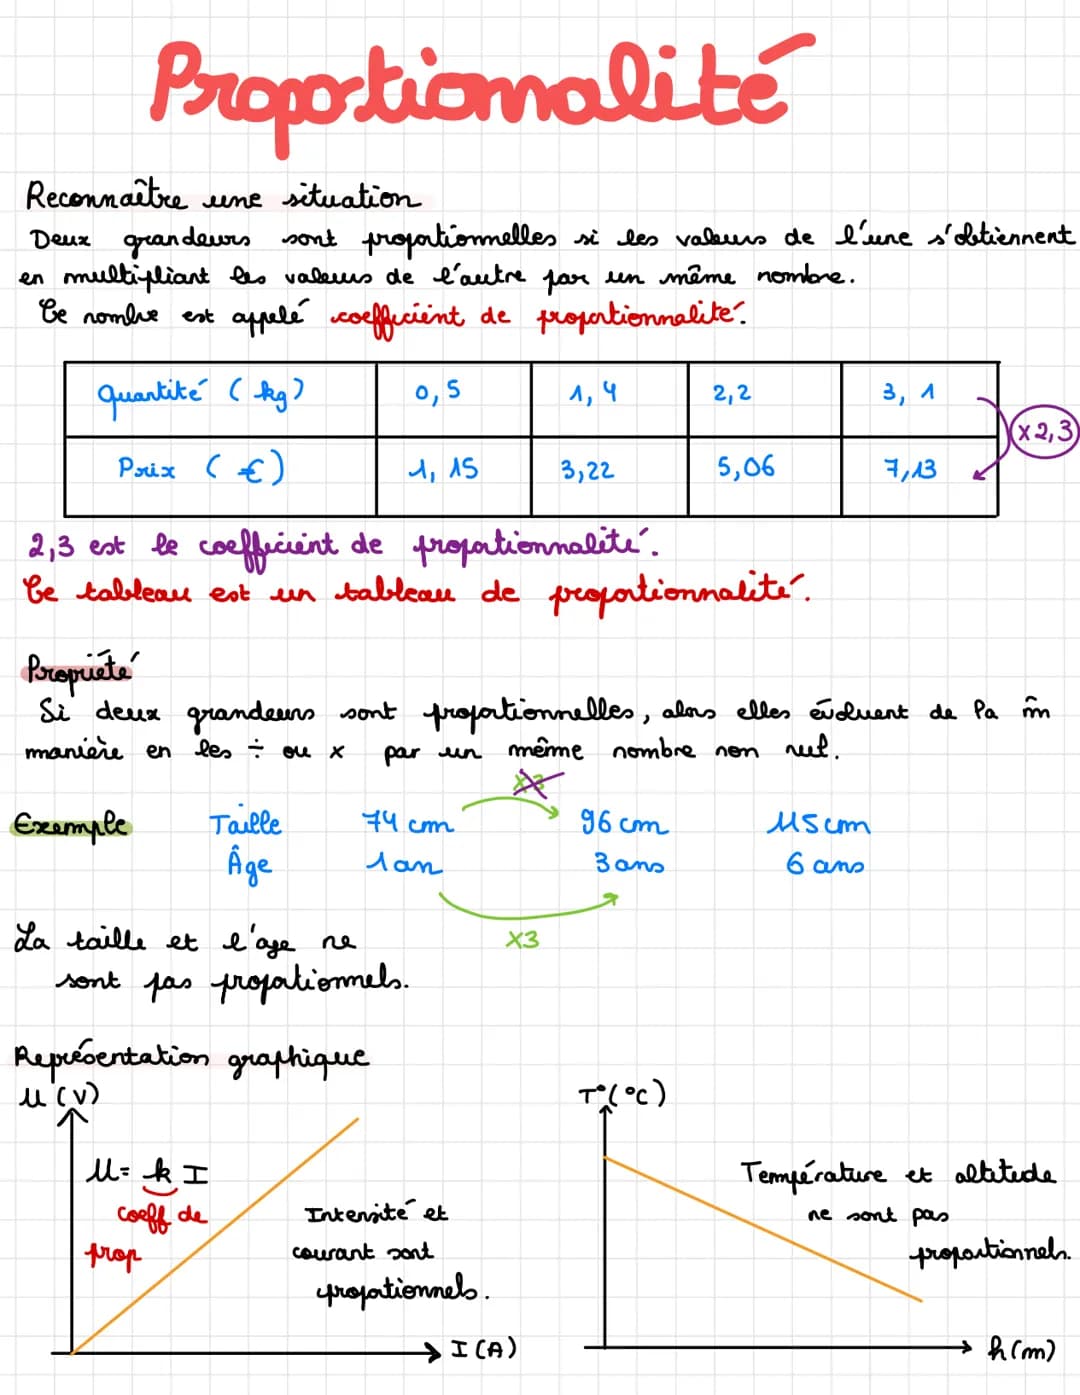 Proportionnalité
Reconnaître une situation
Deux grandeurs sont proportionnelles si les valeurs de l'une s'obtiennent
en multipliant les valeurs de l'autre par un même nombre.
Ce nombre est appelé coefficient de proportionnalité.
Quantité (kg) 0,5 1,4 2,2 3,1
x2,3
Prix (€) 1,15 3,22 5,06 7,13
2,3 est le coefficient de proportionnalité.
Ce tableau est un tableau de proportionnalité.
Propriété
Si deux grandeurs sont proportionnelles, alors elles évoluent de la m̂
manière en les ÷ ou x par un même nombre non nul.
x3
Exemple Taille 74 cm 96 cm 115cm
Âge 1an 3 ans 6 ans
x3
La taille et l'age ne
sont pas proportionnels.
Représentation graphique
U (V)
U = k I
coeff de
prop
Intensité et
courant sont
proportionnels.
I (A)
T°(°C)
Température et altitude
ne sont pas
proportionnels.
h(m)